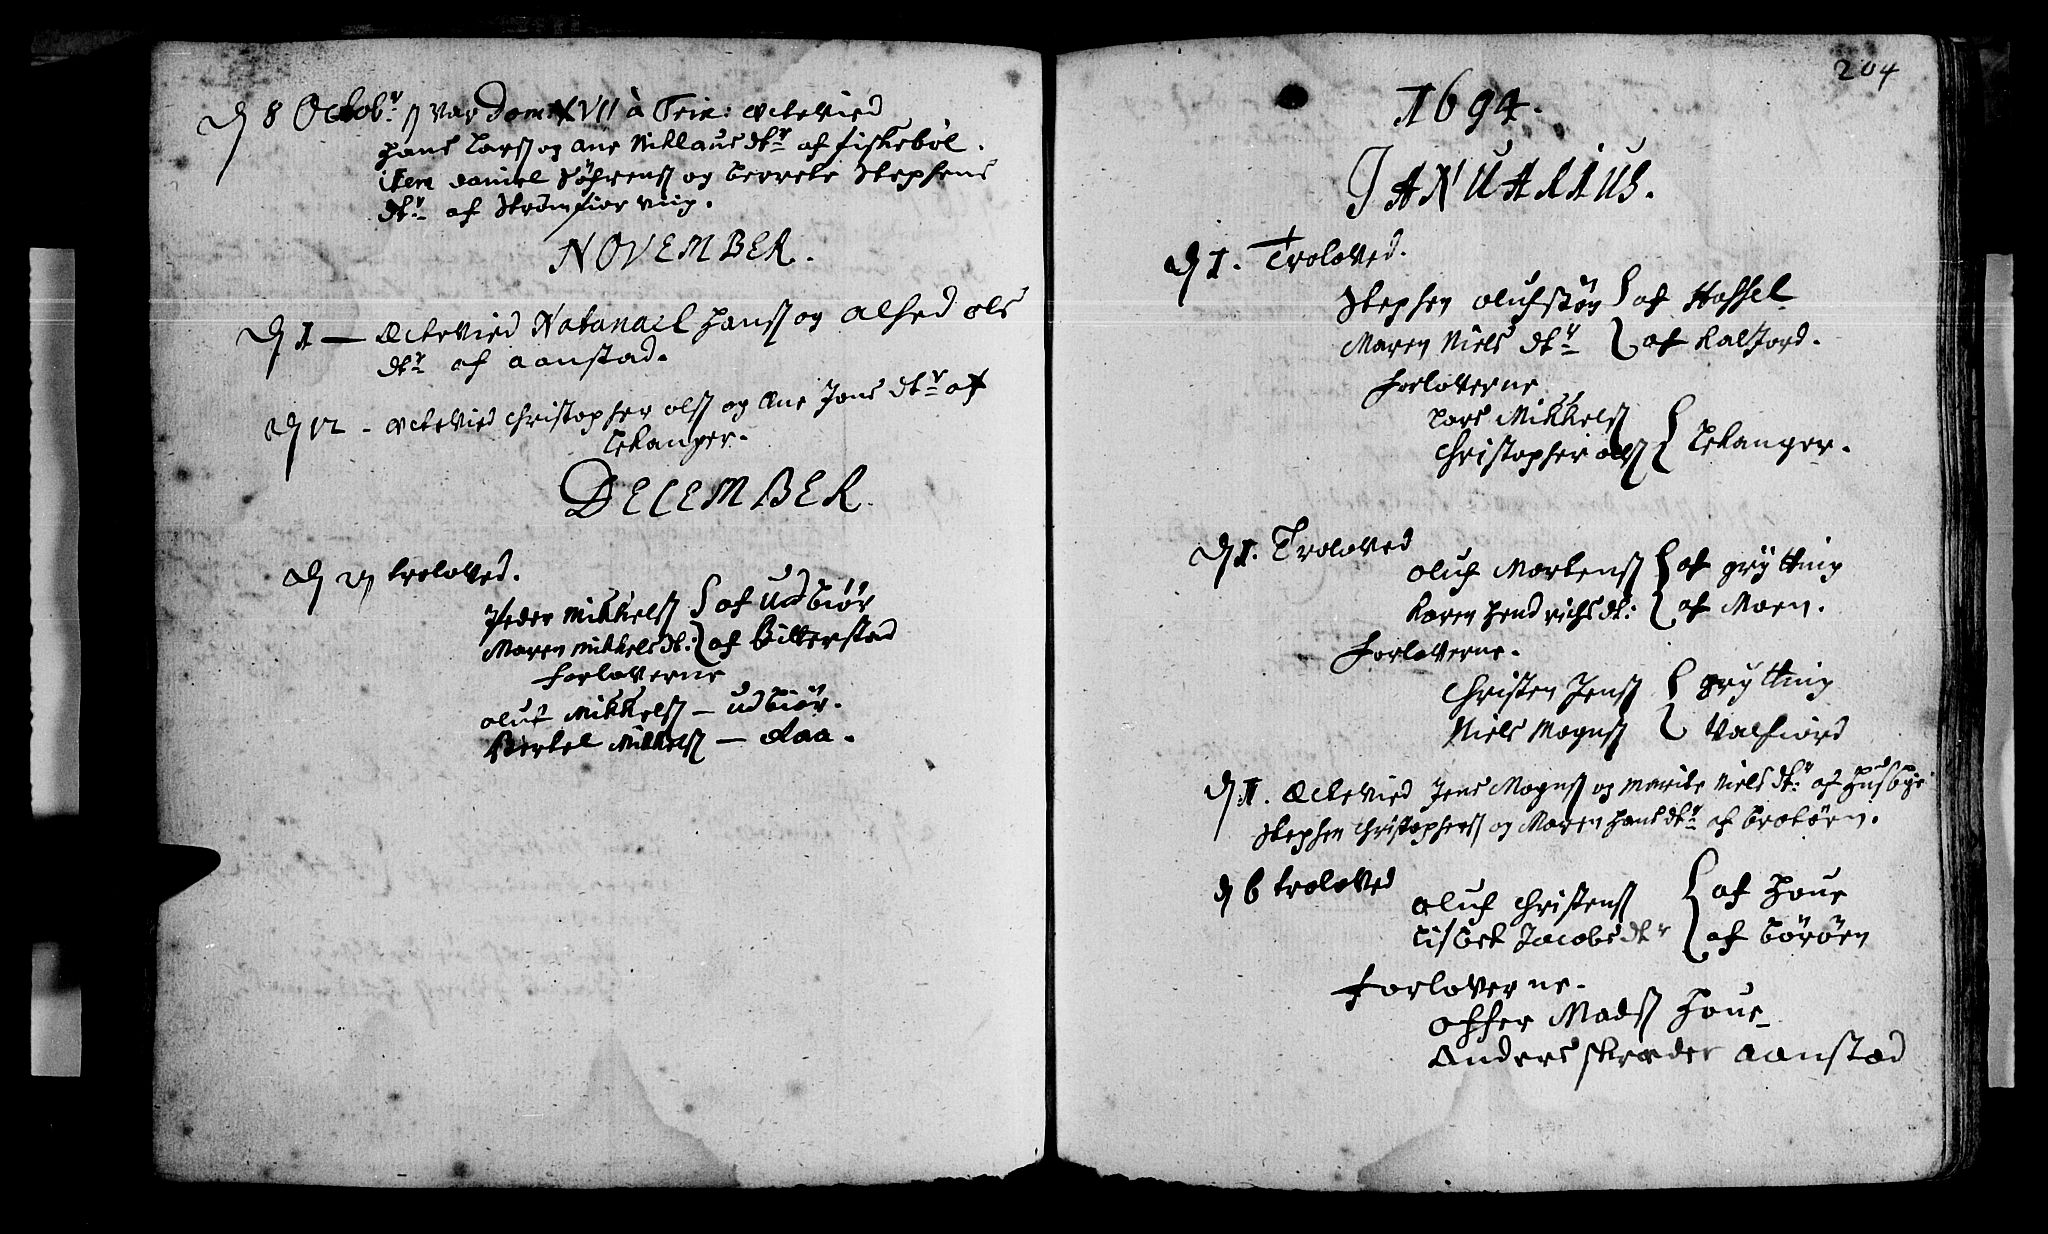 D 8 Octobr. war Dom: XVII à Trin: ectevied
Hans Lars og Ane Niklaus dtr af fiskebøl.
item Daniel Söfrens og Berrete Stephens
dtr af Strømfior viig.
NOVEMBER.
D 1 — Ectevied Natanael Hans og Alhed Ols
dtr af Aanstad.
D 12 - ectevied Christopher Ols og Ane Jons dtr af
Lekanger.
DECEMBER.
D 27 troloved.
Peder Mikkels af Udbiør
Maren Mikkels dt: af Bitterstad
Forloverne
Oluf Mikkels — Udbiør.
Bertel Mikkels — Aaa.
204
1694.
JANUARIUS.
D 1. Troloved.
Stephen Olufsøn af Hassel
Maren Niels dtr af Kalfiord.
Forloverne
Lars Mikkels
Christopher Ols Lekanger.
D 1. Troloved
Oluf Mortens af Grytting
Karen Hendrichs dt: af Moen.
Forloverne.
Christen Jens Grytting
Niels Mogns Valfiord
D 1. Ectevied Jens Mogns og Marite Niels dtr af Husbye
Stephen Christophers og Maren Hans dtr af Brotöen.
D 6 troloved
Oluf Christens af Houe
Lisbet Jacobs dtr af Börøen
Forloverne.
Offer Mads Houe
Anders Skræder Aanstad